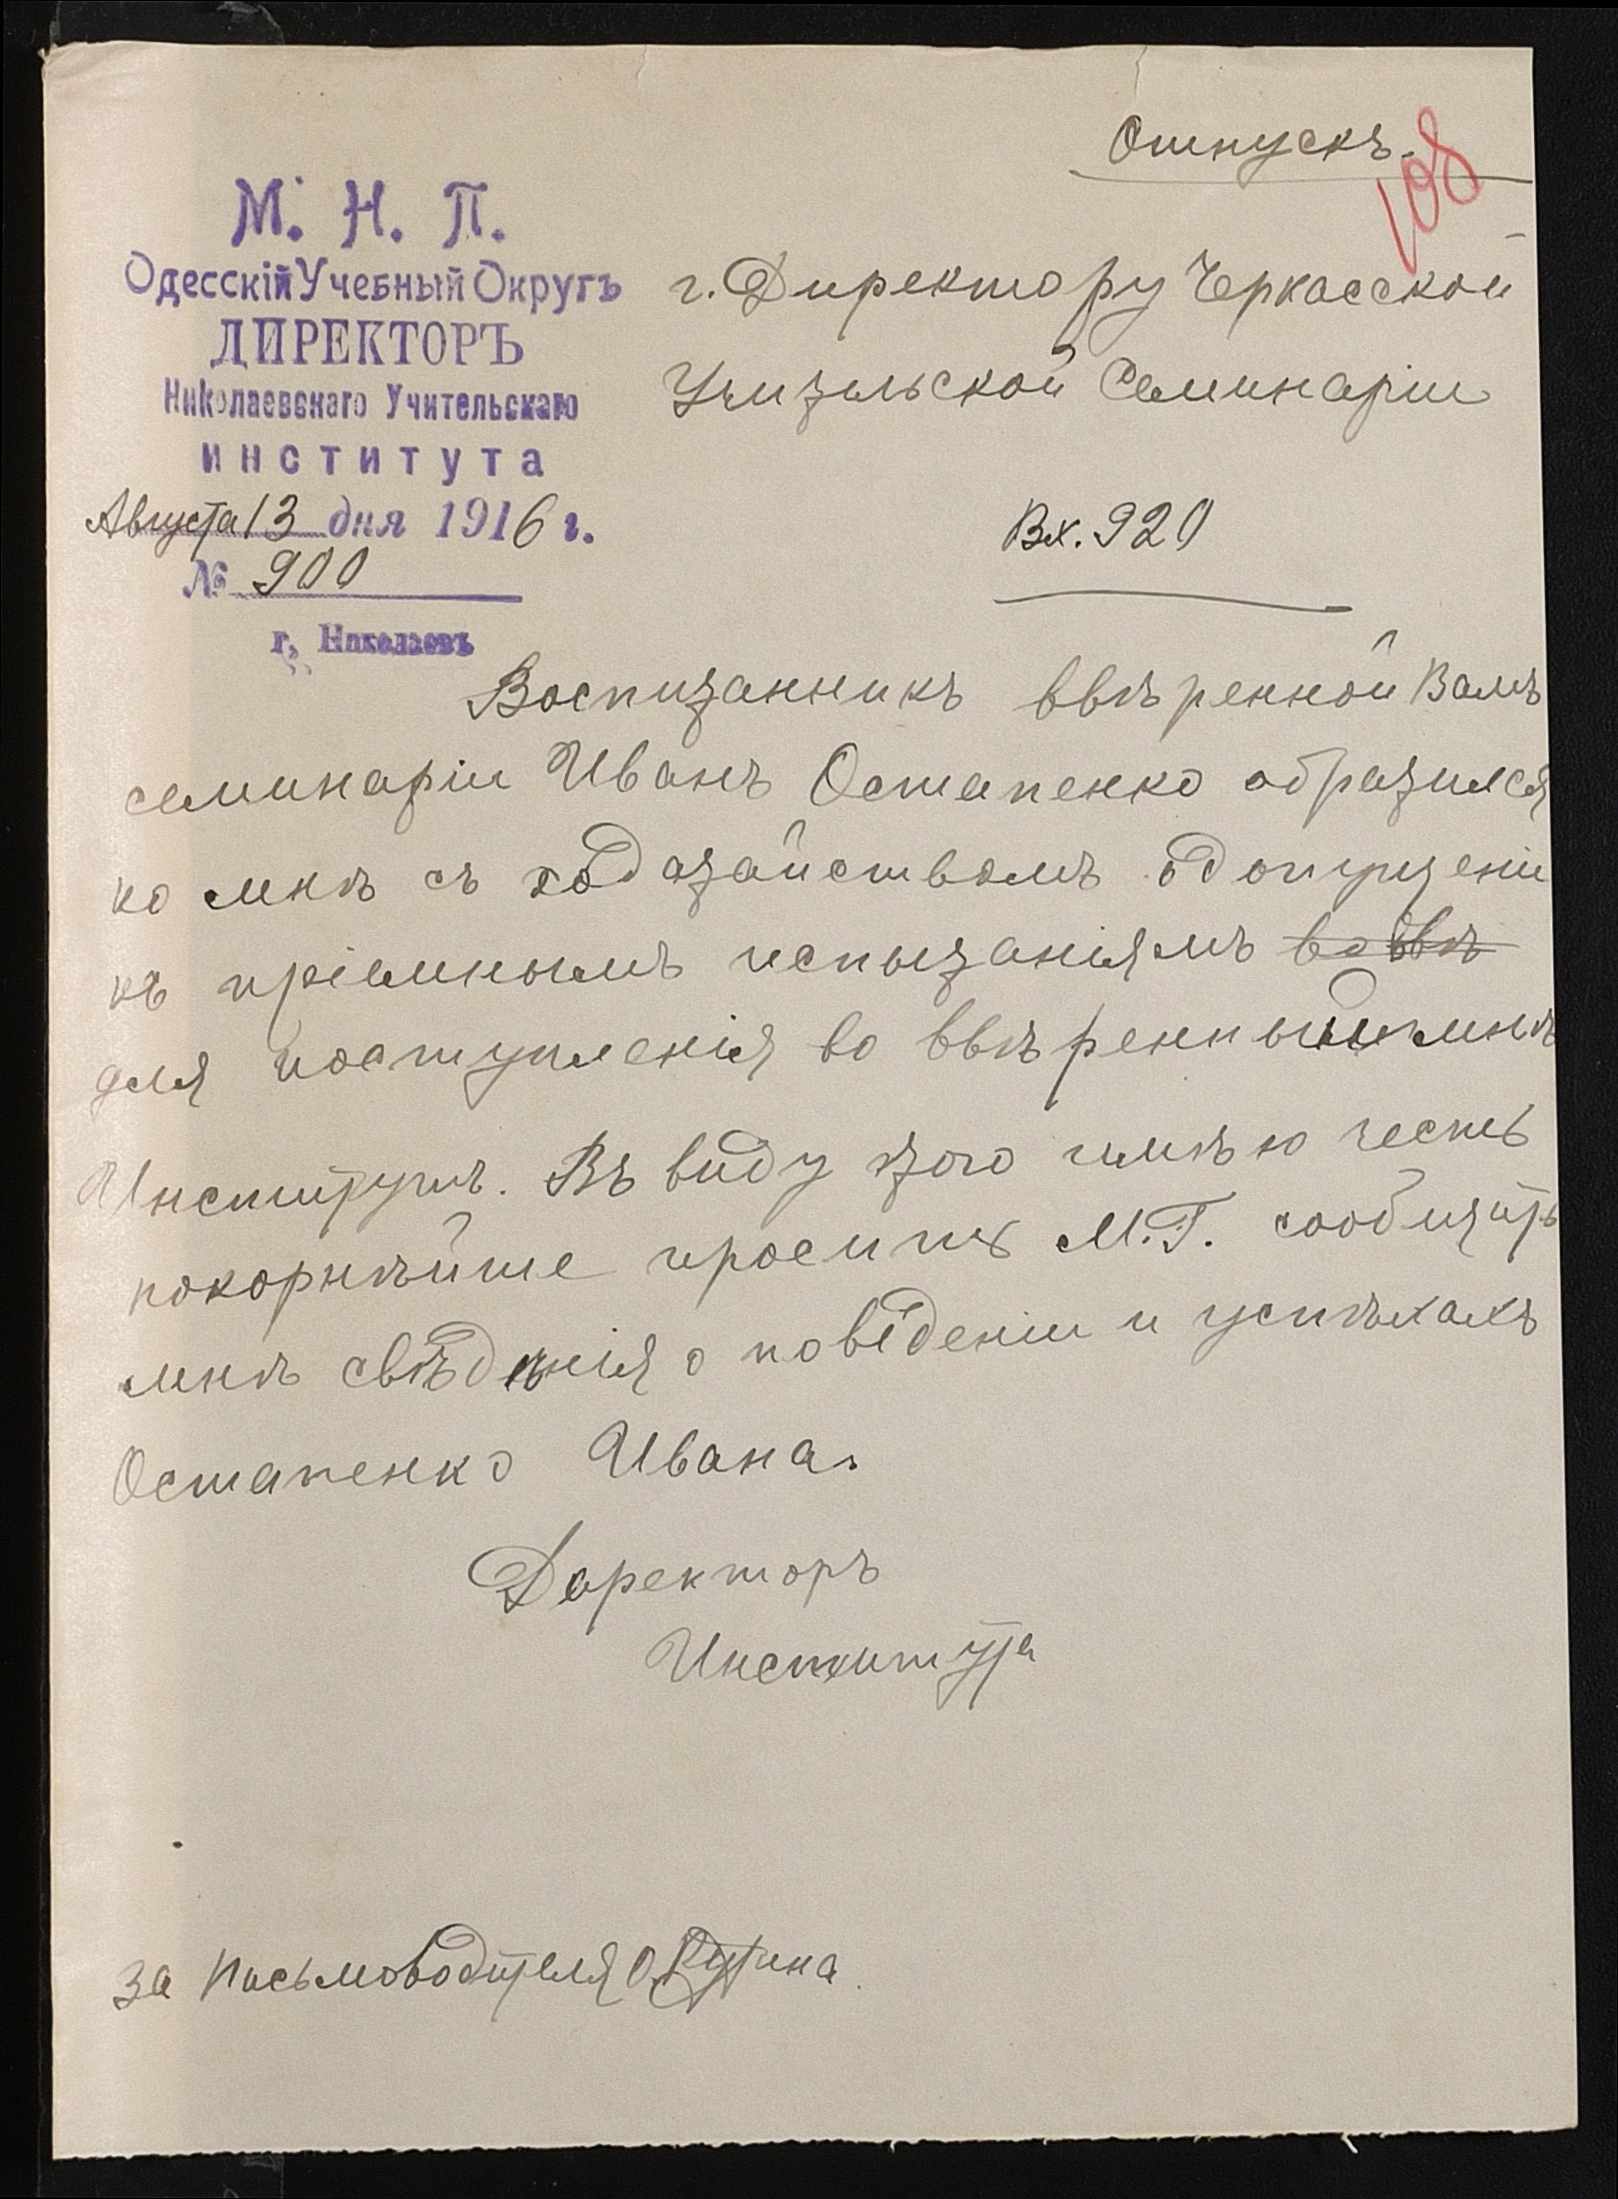 Отпускъ.
108
М. Н. П.
Одесскій Учебный Округъ
ДИРЕКТОРЪ
Николаевскаго Учительскаго
института
Августа 13 дня 1916 г.
№ 900
г. Николаевъ
г. Директору Черкасской
Учительской Семинаріи
Вх. 920
Воспитанникъ ввѣренной Вамъ
семинаріи Иванъ Остапенко обратился
ко мнѣ съ ходатайствомъ о допущеніи
къ пріемнымъ испытаніямъ во ввѣ
для поступленія во ввѣренный мнѣ
Институтъ. Въ виду этого имѣю честь
покорнѣйше просить М.Г. сообщить
мнѣ свѣдѣнія о поведеніи и успѣхахъ
Остапенко Ивана.
Директоръ
Института
За Письмоводителя О.